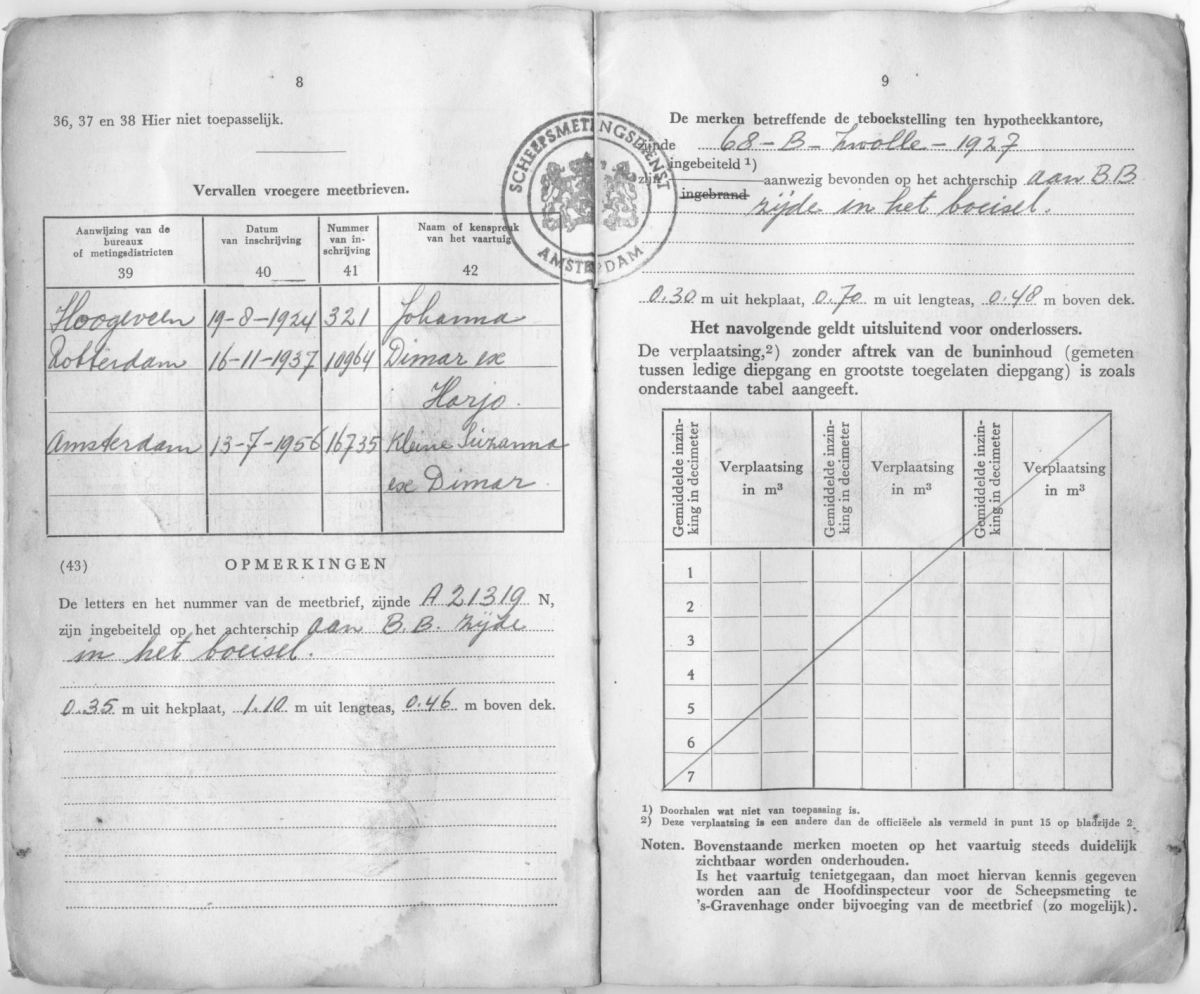 8
36, 37 en 38 Hier niet toepasselijk.
Vervallen vroegere meetbrieven.
Aanwijzing van de bureaux of metingsdistricten
39
Datum van inschrijving
40
Nummer van in-schrijving
41
Naam of kenspreuk van het vaartuig
42
Hoogeveen 19-8-1924 321 Johanna
Rotterdam 16-11-1937 10964 Dimar ex
Harjo.
Amsterdam 13-7-1956 16735 Kleine Suzanna
ex Dimar
(43) OPMERKINGEN
De letters en het nummer van de meetbrief, zijnde A 21319 N,
zijn ingebeiteld op het achterschip aan B.B. zijde
in het boeisel.
0.35 m uit hekplaat, 1.10 m uit lengteas, 0.46 m boven dek.
SCHEEPSMETINGSDIENST
AMSTERDAM
9
De merken betreffende de teboekstelling ten hypotheekkantore,
zijnde 68-B-Zwolle-1927
zijn ingebeiteld 1) ingebrand aanwezig bevonden op het achterschip aan B.B
zijde in het boeisel.
0.30 m uit hekplaat, 0.70 m uit lengteas, 0.48 m boven dek.
Het navolgende geldt uitsluitend voor onderlossers.
De verplaatsing,2) zonder aftrek van de buninhoud (gemeten
tussen ledige diepgang en grootste toegelaten diepgang) is zoals
onderstaande tabel aangeeft.
Gemiddelde inzin-
king in decimeter
Verplaatsing
in m3
Gemiddelde inzin-
king in decimeter
Verplaatsing
in m3
Gemiddelde inzin-
king in decimeter
Verplaatsing
in m3
1
2
3
4
5
6
7
1) Doorhalen wat niet van toepassing is.
2) Deze verplaatsing is een andere dan de officiëele als vermeld in punt 15 op bladzijde 2
Noten. Bovenstaande merken moeten op het vaartuig steeds duidelijk
zichtbaar worden onderhouden.
Is het vaartuig tenietgegaan, dan moet hiervan kennis gegeven
worden aan de Hoofdinspecteur voor de Scheepsmeting te
's-Gravenhage onder bijvoeging van de meetbrief (zo mogelijk).